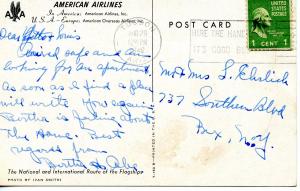 AMERICAN AIRLINES
In America: American Airlines, Inc.
U.S.A.-Europe: American Overseas Airlines, Inc.
AA
POST CARD
HIRE THE HAND
IT'S GOOD BU
1 CENT 1
Dear
Arrived safe and am
looking for an apartment.
As soon as I find a place
will write you again.
Bertha is feeling about
the same. Best
regards from
Bertha & Abe
Mr & Mrs S. Ehrlich
737 Southern Blvd
Bx, N.Y.
The National and International Route of the Flagships
PHOTO BY IVAN DMITRI